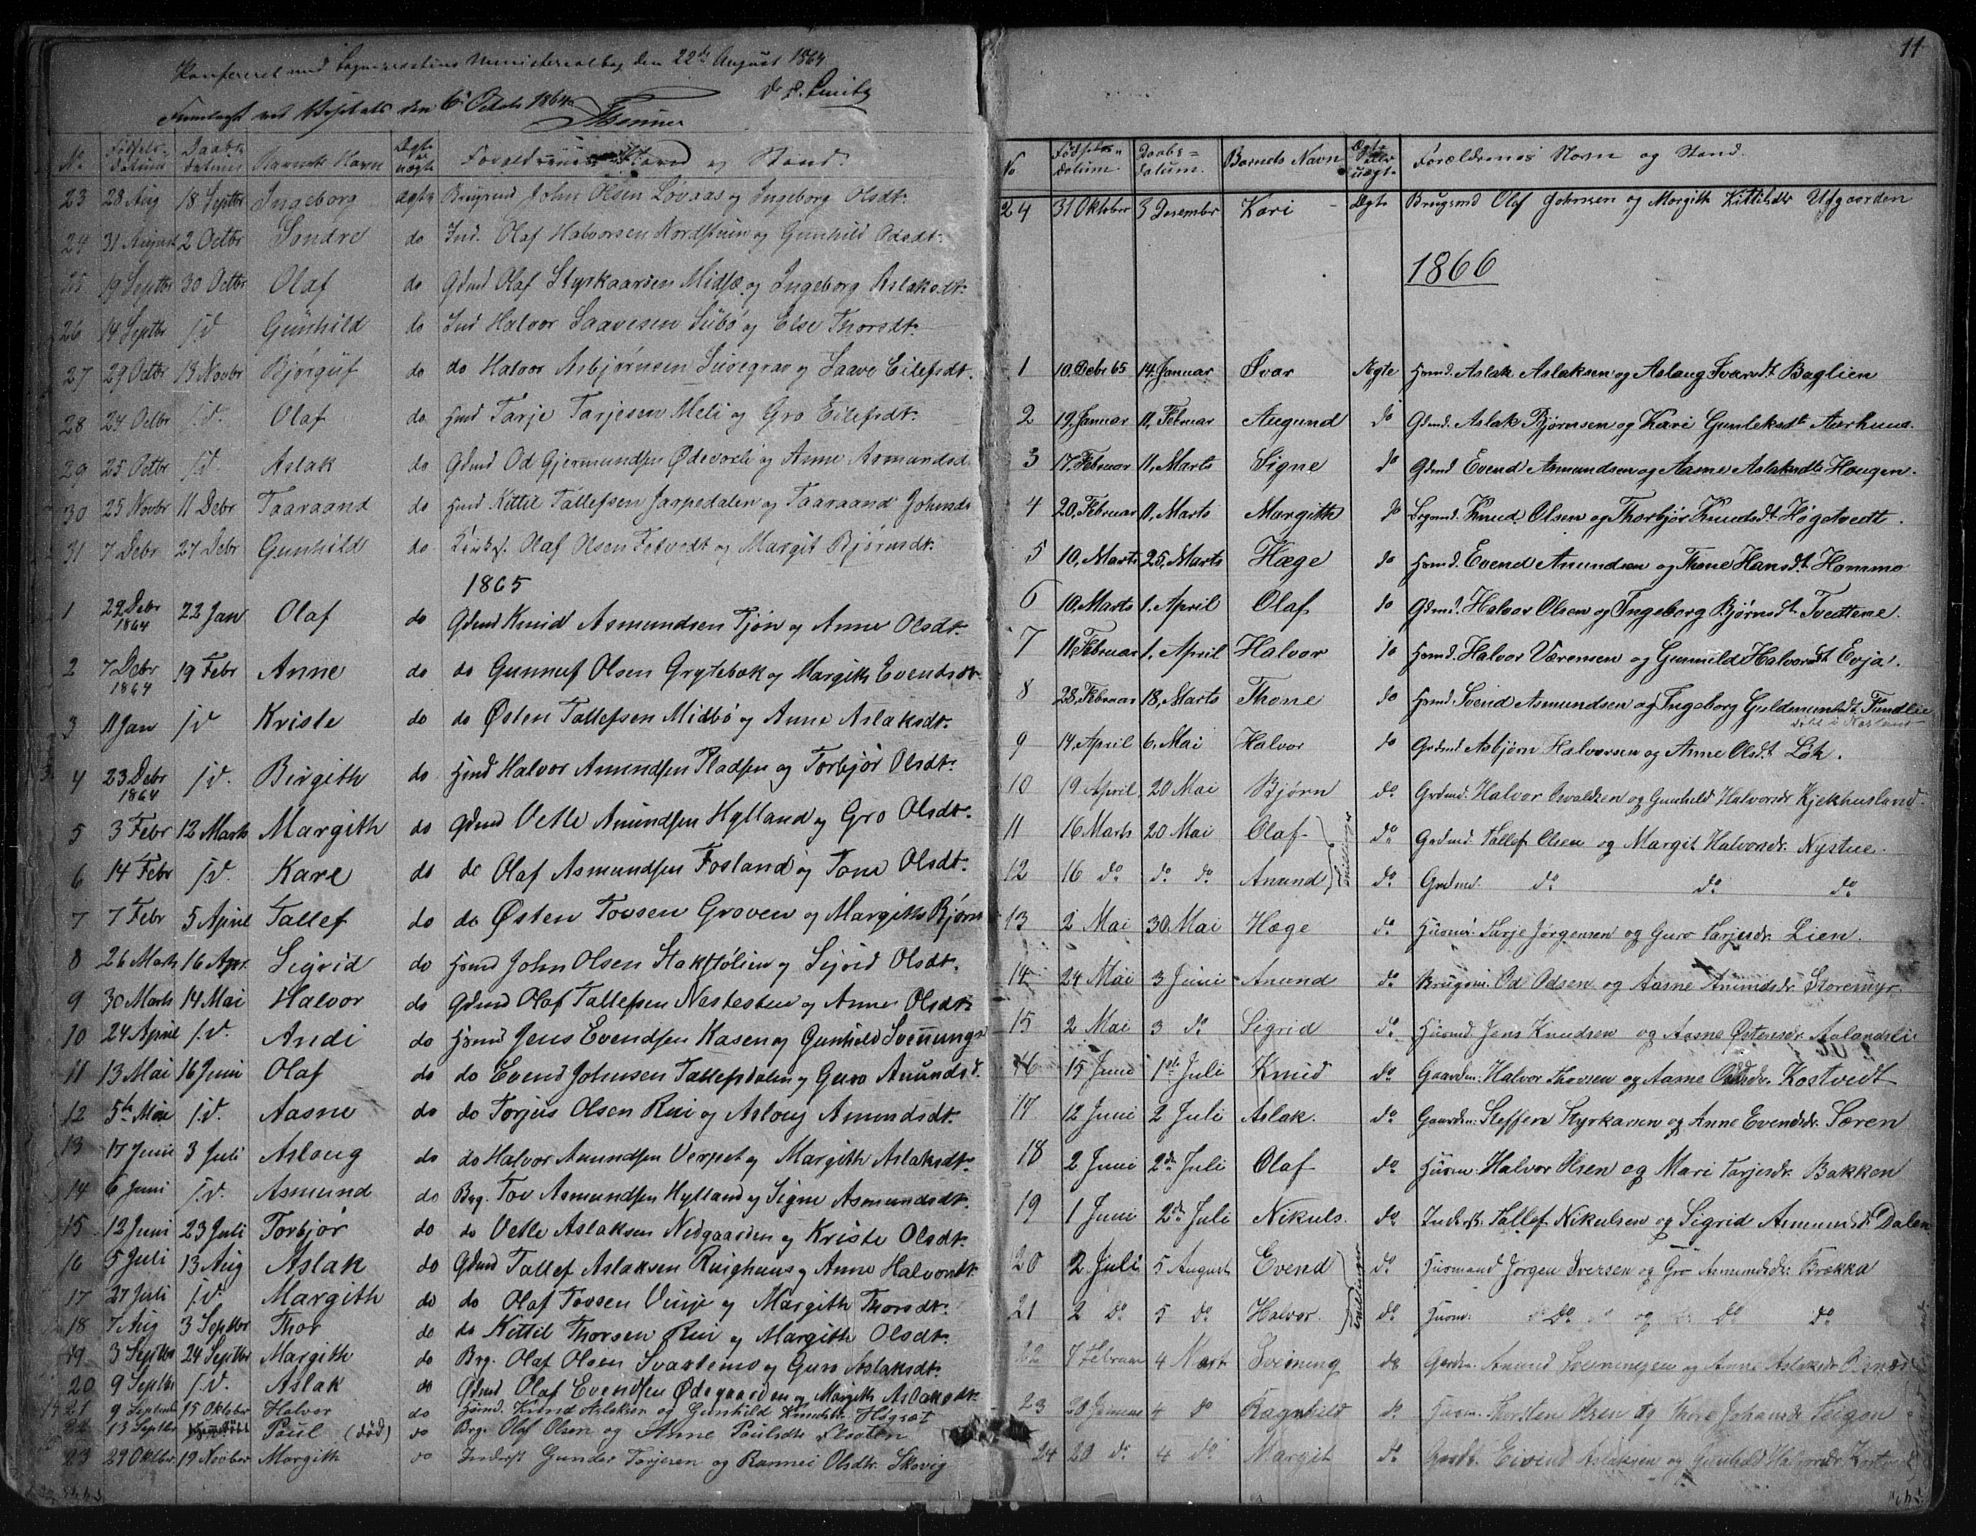 Konfereret med Sognepræstens Ministerialbog den 22de August 1864
Fremlagt ved Bispevisitats den 6te Octob. 1864
No Fødsels-datum Daabs-datum Barnets Navn Ægte el. uægte Forældrenes Navn og Stand.
23 28 Aug 18 Septbr Ingeborg ægte Brugmd John Olsen Løvaas og Ingeborg Olsdtr.
24 31 August 2 Octbr Sondre do Ind. Olaf Halvorsen og Gunhild Odsdt.
25 19 Septbr 30 Octbr Olaf do Gdmd Olaf Styrkaarsen Midsæ og Ingeborg Aslaksdt.
26 14 Septbr s.D. Gunhild do Ind Halvor Saavesen Sübø og Else Thorsdt.
27 29 Octbr 13 Novbr Bjørguf do do Halvor Asbjørnsen og Saave Eilefsdt.
28 24 Octbr s.D. Olaf do Hmd Tarje Tarjesen Meli og Gro Eilefsdt.
29 25 Octbr s.D. Aslak do Gdmd Od Gjermundsen og Anne Asmundsd
30 25 Novbr 11 Debr Taaraand do Hmd Kittil Tallefsen Jarpedalen og Taaraand Johnsdt
31 7 Debr 27 Debr Gunhild do Olaf Olsen Felvedt og Margit Bjørnsdt.
1865
1 22 Debr 1864 22 Jan Olaf do Gdmd Knud Asmundsen Tjøn og Anne Olsdt.
2 7 Debr 1864 19 Febr Anne do do Gunnuf Olsen Grytebæk og Margith Evendsdt
3 11 Jan s.D. Kriste do do Østen Tallefsen Midbø og Anne Aslaksdt.
4 23 Debr 1864 s.D. Birgith do Hmd Halvor Amundsen Pladsen og Torbjør Olsdt.
5 3 Febr 12 Marts Margith do Gdmd Vetle Amundsen Hylland og Gro Olsdt.
6 14 Febr s.D. Kare do do Olaf Asmundsen Fosland og Tone Olsdt.
7 7 Febr 5 April Tallef do do Østen Tovsen Groven og Margith Bjørn
8 26 Marts 16 Apr. Sigrid do Hmd John Olsen Stakstølien og Sigrid Olsdt.
9 30 Marts 14 Mai Halvor do Gdmd Olaf Tallefsen Nestesten og Anne Olsdt.
10 24 April s.D. Andi do Hmd Jens Evendsen Kasen og Gunhild Svenungs
11 13 Mai 16 Juni Olaf do do Evend Johnsen Tallefsdalen og Guro Anundsd.
12 5te Mai s.D. Aasne do do Torjus Olsen Rui og Aslaug Amundsdt.
13 17 Juni 3 Juli Aslaug do do Halvor Anundsen Verpet og Margith Aslaksdt.
14 6 Juni s.D. Asmund do Brg. Tov Asmundsen Hylland og Signe Asmundsdt.
15 12 Juni 23 Juli Torbjør do do Vetle Aslaksen Nedgaarden og Kriste Olsdt.
16 5 Juli 13 Aug Aslak do Gdmd Tallef Aslaksen Ruighuus og Anne Halvorsdt.
17 27 Juli s.D. Margith do do Olaf Tovsen Vinje og Margith Thorsdt.
18 7 Aug 3 Septbr Thor do do Kittil Thorsen Rui og Margith Olsdt.
19 3 Septbr 24 Septbr Margith do Brg. Olaf Olsen Svartemo og Guro Aslaksdt.
20 9 Septbr s.D. Aslak do Gdmd Olaf Evendsen Ødegaarden og Margith Aslaksdt.
21 9 Septembr 15 Oktober Halvor do Husmd. Knud Aslaksen og Gunhild Knudsdt Høgsæt
22 13 Septbr Paul (død) do Brg. Olaf Olsen og Anne Paulsdtr Flaaten
23 29 Oktbr 19 Novber Margith do Inderst Gunder Torjesen og Rannei Olsdtr. Skovig
11
No Fødsels-datum Daabs-datum. Barnets Navn Ægte eller uægt. Forældrenes Navn og Stand.
24 31 Oktober 3 Desember Kari Ægte Brugsmd Olaf Johnsen og Margith Kittilsdtr Utgaarden
1866
1 10. Debr 65 14. Januar Ivar Ægte Husmd. Aslak Aslaksen og Aslaug Ivarsdt. Baglien
2 19. Januar 11. Februar Augund do Gdmd. Aslak Bjørnsen og Kari Gunleksdt Aarhuus.
3 17. Februar 11. Marts Signe do Gdmd Evend Asmundsen og Aasne Aslaksdt. Haugen.
4 20. Februar 11. Marts Margith do Brgmd. Knud Olsen og Thorbjør Knudsdt. Høgetvedt.
5 10. Marts 25. Marts Hæge do Husmd. Evend Anundsen og Thone Hansdt. Hommo
6 10. Marts 1. April Olaf do Gdmd. Halvor Olsen og Ingeborg Bjørnsdt Tvedtene.
7 11. Februar 1. April Halvor do Husmd. Halvor Værensen og Gunnild Halvorsdt Evja.
8 28. Februar 18. Marts Thone do Husmd Svend Asmundsen og Ingeborg Guldmundsdt.
9 14. April 6. Mai Halvor do Grdmd. Asbjørn Halvorsen og Anne Olsdt. Løk.
10 19 April. 20 Mai Bjørn do. Grdmd. Halvor Osvaldsen og Gunhild Halvorsdr. Kjekhusland.
11 16 Marts 20 Mai Olaf Tvillinger do Grdmd Tallef Olsen og Margit Halvorsdr. Nystue.
12 16 do do do Anund do. Grdmd. do do do
13 2 Mai 30 Mai Hæge do. Husmd. Tarje Jørgensen og Guro Tarjesdr. Lien.
14 24 Mai 3 Juni Anund do. Brugsm. Od Odsen og Aasne Anundsdr. Storemyr.
15 2 Mai 3 do Sigrid do. Husmd. Jens Knudsen og Aasne Østensdr. Aalandsli
16 15 Juni 1ste Juli Knud do Gaardm. Halvor Thovsen og Aasne Kostvedt
17 12 Juni 2 Juli Aslak. do. Gaardm. Steffen Styrkarsen og Anne Evendsdr. Særen
18 2 Juni 2de Juli Olaf do. Husm. Halvor Olsen og Mari Tarjesdr. Bakken
19 1 Juni 2de Juli Nikuls. do. Inderst. Tallef Nikulsen og Sigrid Asmundsdr Dalen
20 2 Juli 5 August Evend Tvillinger do. Husmand Jørgen Iversen og Gro Asmundsdr. Brække
21 2 do 5 do Halvor. do. Husm. do og do do
22 7 Februar 4 Mart Svenung do Gardm. Anund Svenungsen og Anne Aslaksdr
23 20 Januar 4 do Ragnhild do. Husm. Thorsten Olsen og Thore Johansdr. Teigen
24 20 do 4 do Margit do Gardm. Eivend Aslaksen og Gunhild Halvorsdr. Kostvedt